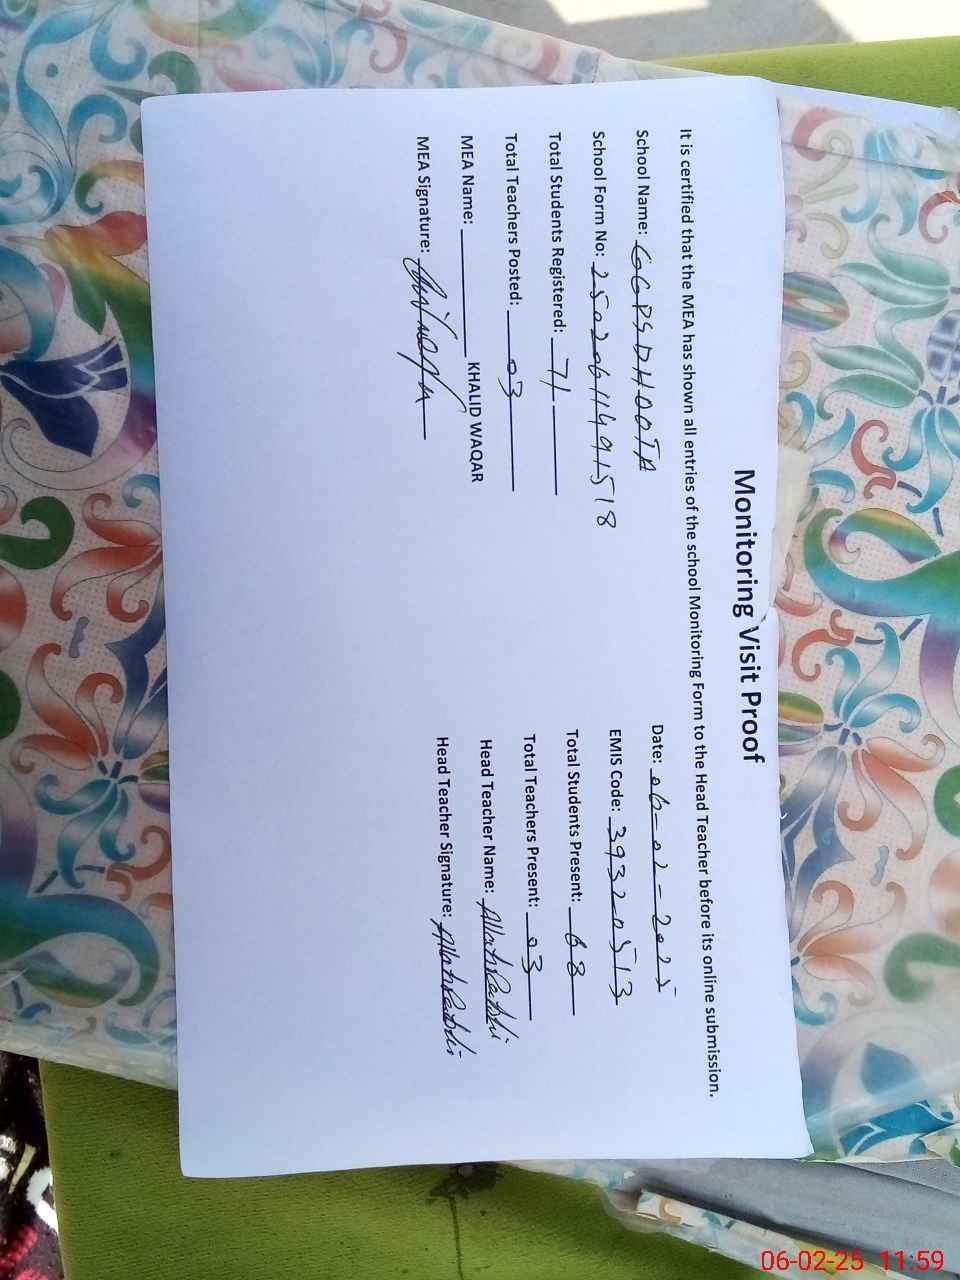 Monitoring Visit Proof
It is certified that the MEA has shown all entries of the school Monitoring Form to the Head Teacher before its online submission.
School Name: GGPS DHOOTA Date: 06-02-2025
School Form No: 25020611491518 EMIS Code: 39320513
Total Students Registered: 71 Total Students Present: 68
Total Teachers Posted: 03 Total Teachers Present: 03
MEA Name: KHALID WAQAR Head Teacher Name: Allah Rakhi
MEA Signature: Head Teacher Signature: Allah Rakhi
06-02-25 11:59